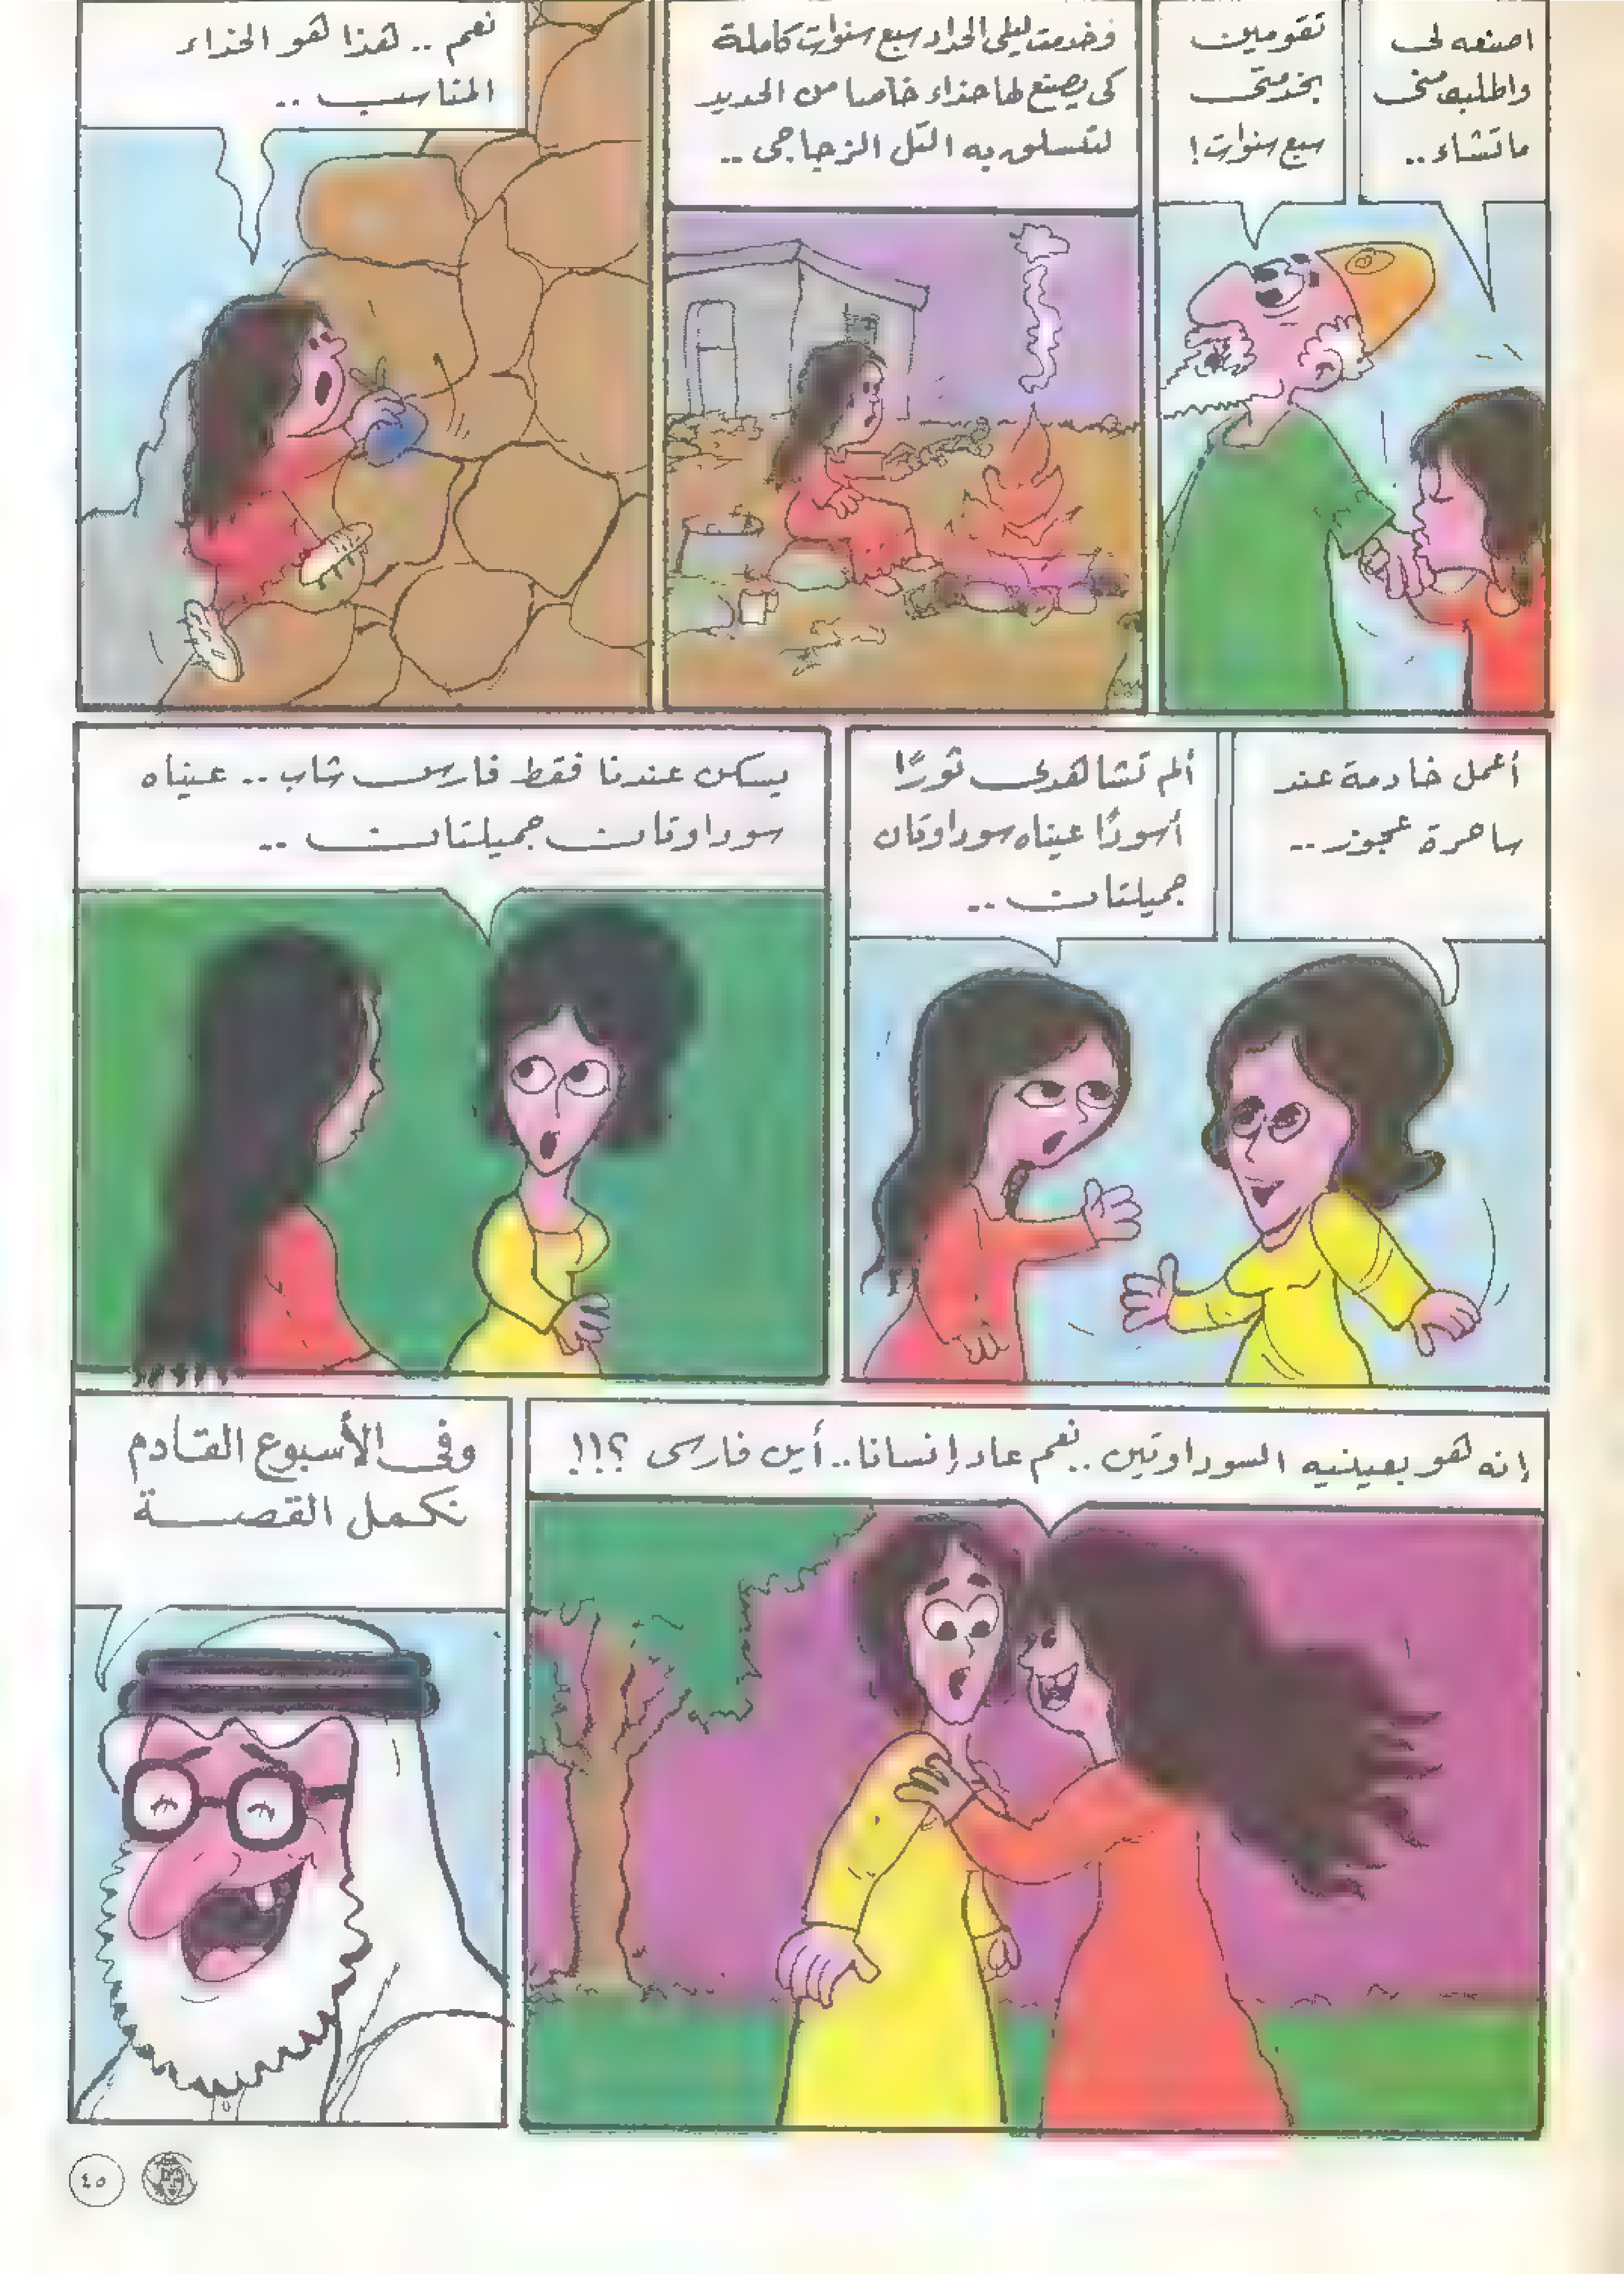 اصنعه لى
واطلبه منى
ماتشاء..
تقومين
بخدمتى
سبع سنوات!
وخدمت ليلى الحداد سبع سنوات كاملة
كى يصنع لها حذاء خاصا من الحديد
لتتسلق به التل الزجاجى ..
نعم .. هذا هو الحذاء
المناسب ..
أعمل خادمة عند
ساحرة عجوز ..
ألم تشاهدى ثورًا
أسودًا عيناه سوداوتان
جميلتان ..
يسكن عندنا فقط فارس شاب .. عيناه
سوداوتان جميلتان ..
إنه هو بعينيه السوداوتين .. نعم عاد إنسانا .. أين فارسى ؟!!
وفى الأسبوع القادم
نكمل القصة
٤٥